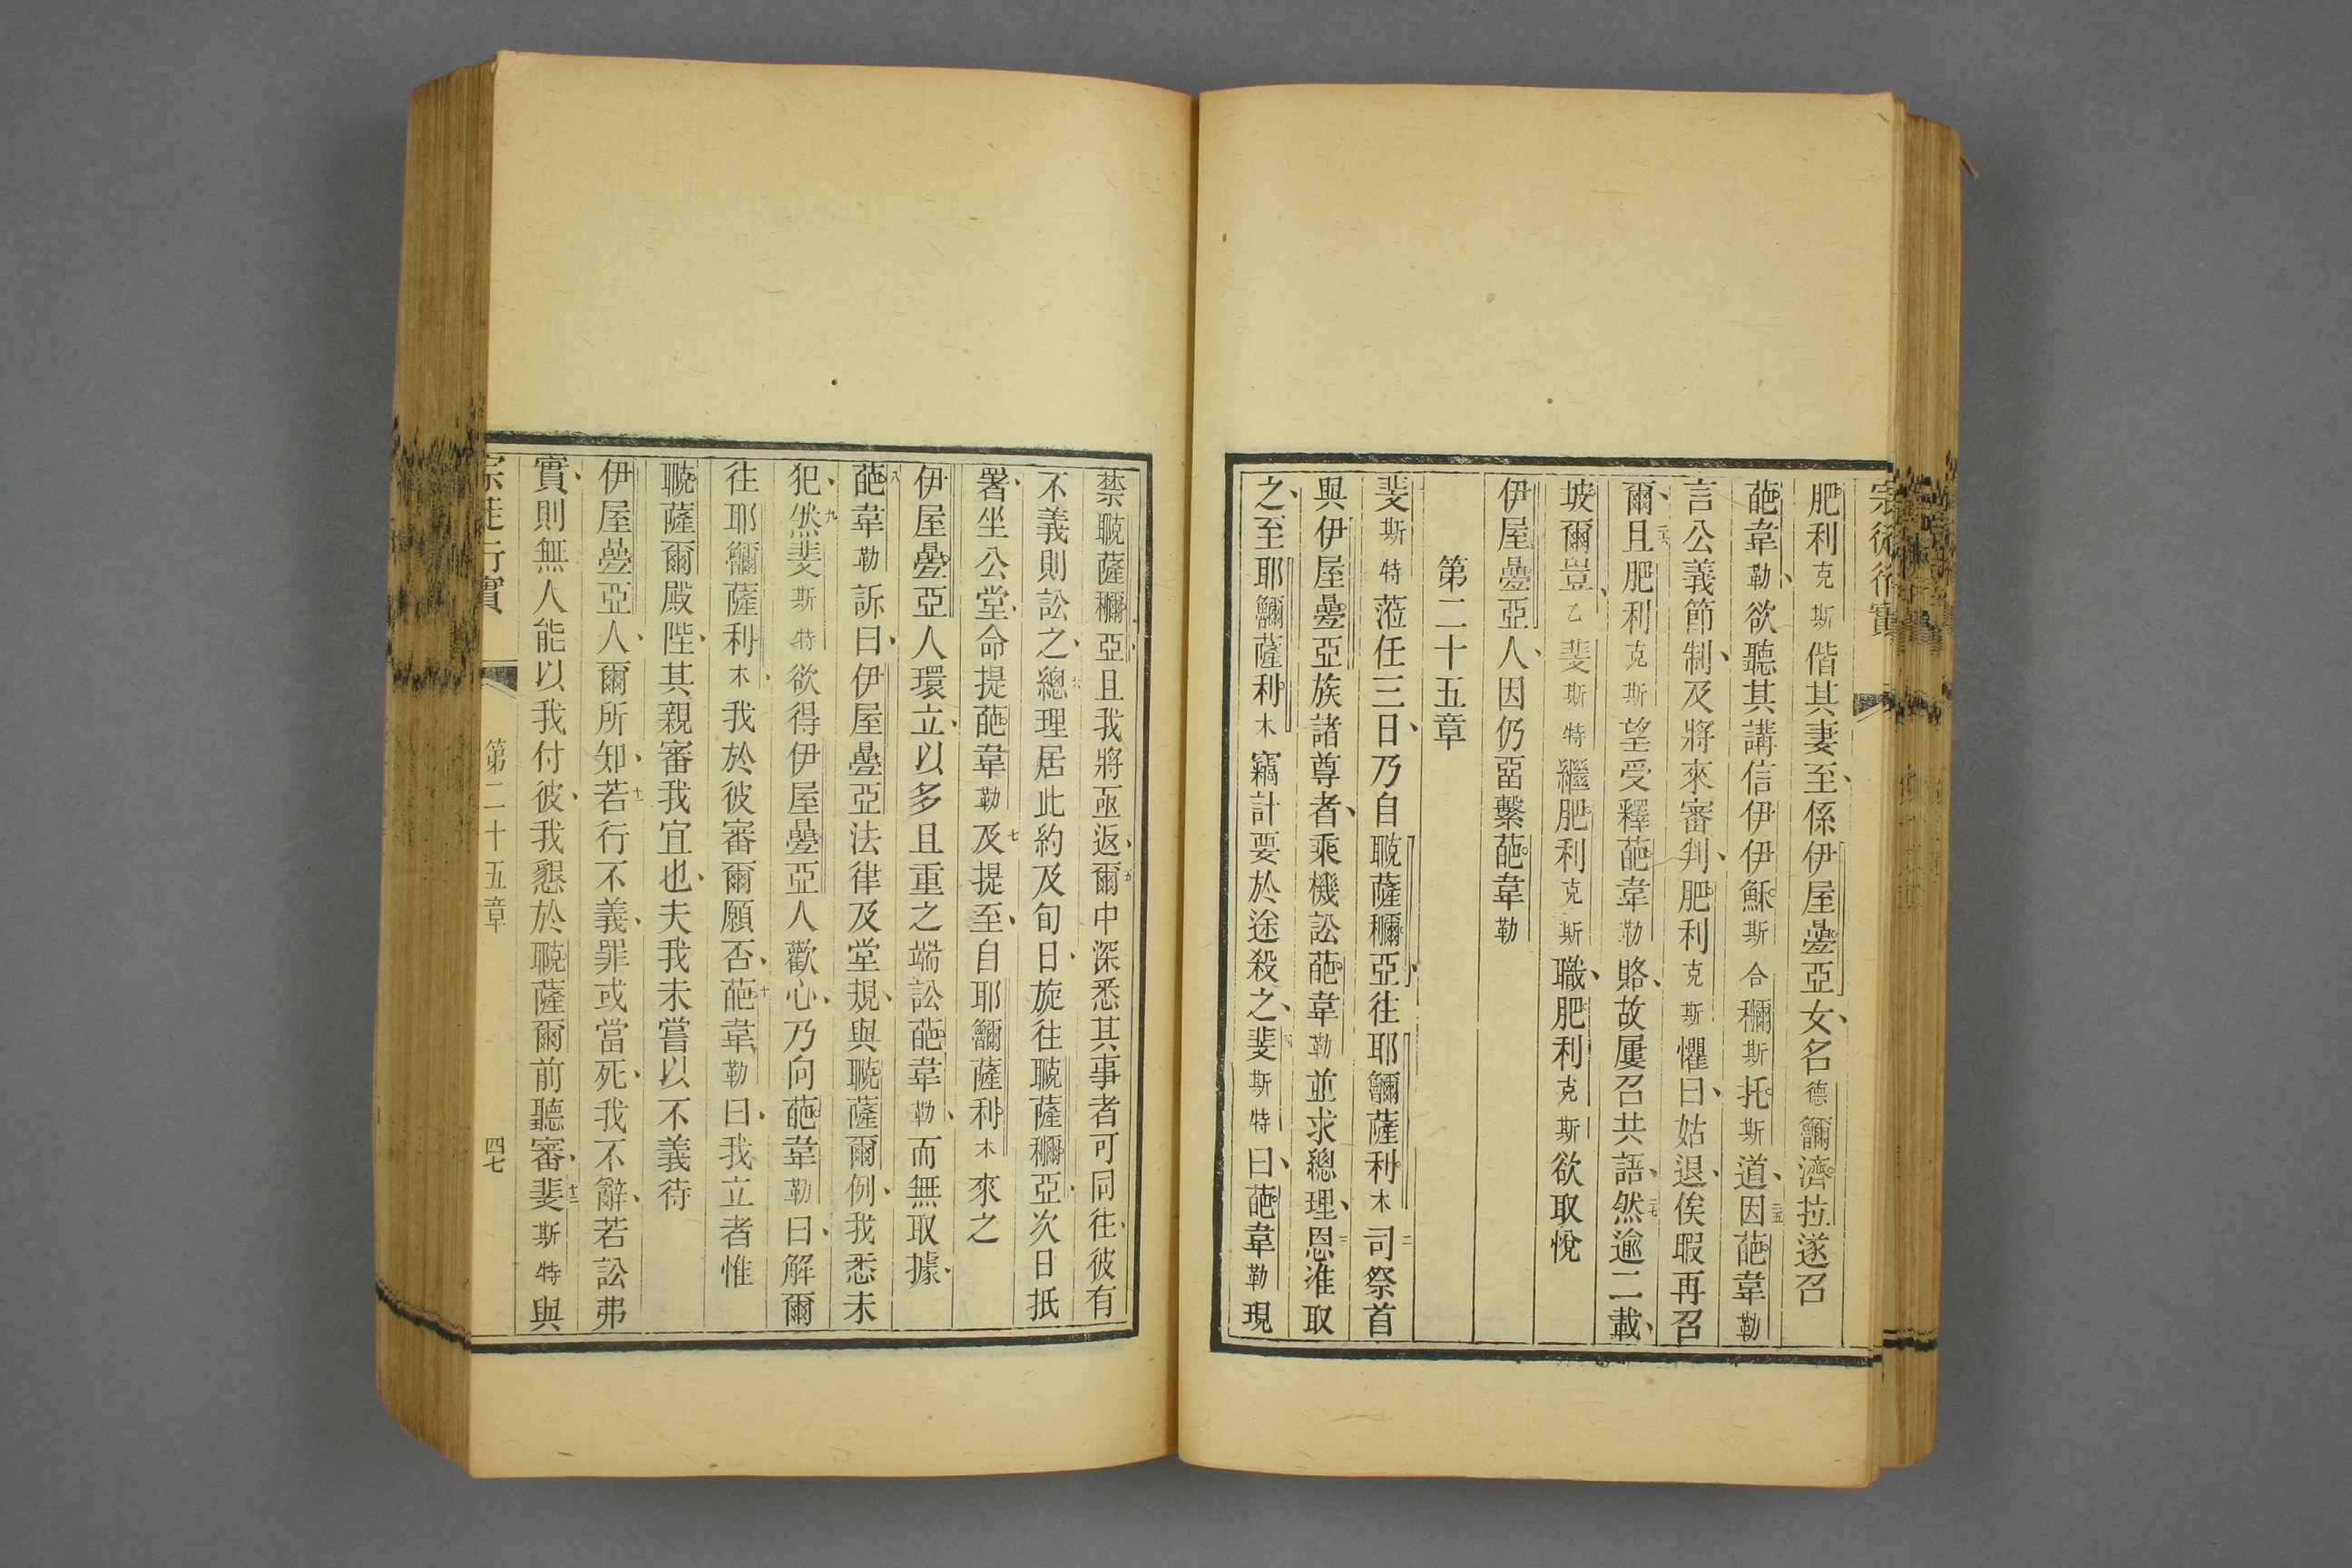 肥利克斯偕其妻至、係伊屋疊亞女、名德㣆濟拉遂召
葩韋勒、欲聽其講信伊伊穌斯合穪斯托斯道、二五因葩韋勒
言公義節制、及將來審判、肥利克斯懼曰、姑退、俟暇再召
爾、二六且肥利克斯望受釋葩韋勒賂、故屢召共語、二七然逾二載、
坡爾豈乙斐斯特繼肥利克斯職、肥利克斯欲取悅
伊屋疊亞人、因仍畱繫葩韋勒
第二十五章
斐斯特蒞任三日、乃自䫿薩穪亞、往耶㣆薩利木二司祭首
與伊屋疊亞族諸尊者、乘機訟葩韋勒並求總理、三恩准取
之、至耶㣆薩利木竊計要於途殺之、斐斯特曰、葩韋勒現
禁䫿薩穪亞、且我將亟返、五爾中深悉其事者可同往、彼有
不義則訟之、六總理居此約及旬日、旋往䫿薩穪亞、次日抵
署、坐公堂、命提葩韋勒七及提至、自耶㣆薩利木來之
伊屋疊亞人環立、以多且重之端訟葩韋勒、而無取據、
八葩韋勒訴曰、伊屋疊亞法律及堂規、與䫿薩爾例、我悉未
犯、九然斐斯特欲得伊屋疊亞人歡心、乃向葩韋勒曰、解爾
往耶㣆薩利木、我於彼審爾願否、十葩韋勒曰、我立者惟
䫿薩爾殿陛、其親審我宜也、夫我未嘗以不義待
伊屋疊亞人、爾所知、十一若行不義、罪或當死、我不辭、若訟弗
實、則無人能以我付彼、我懇於䫿薩爾前聽審、十二斐斯特與
宗徒行實 第二十五章 四七